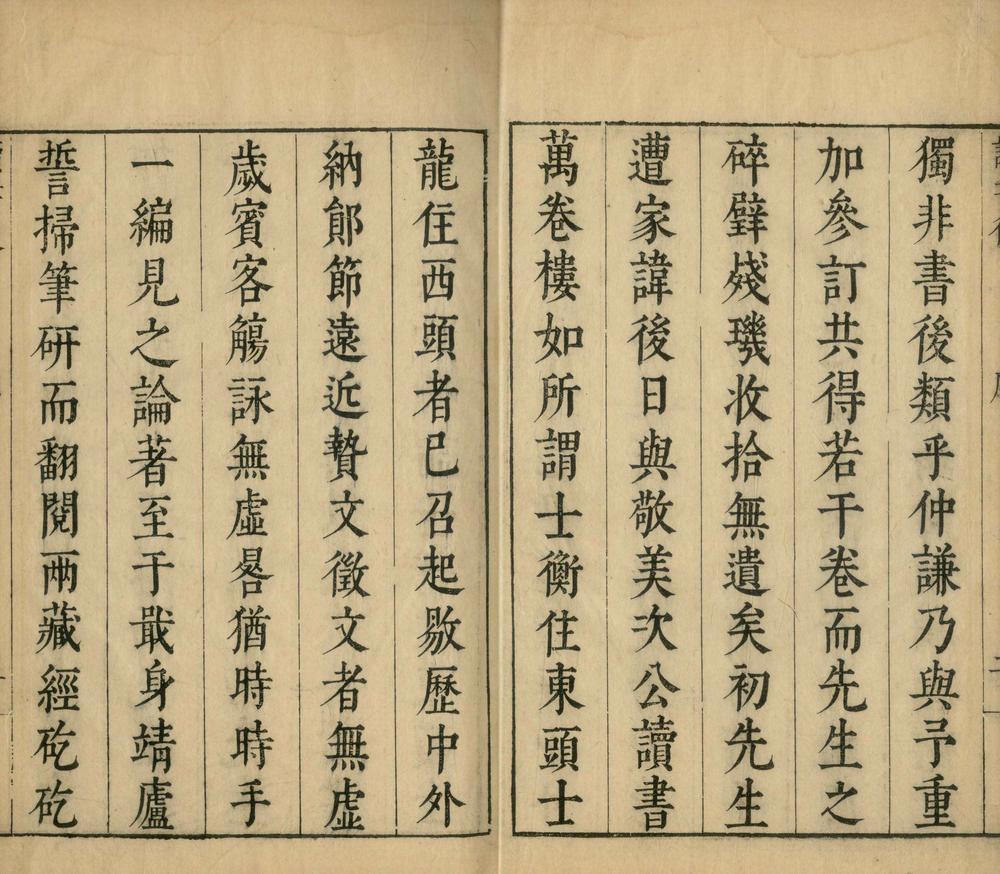 獨非書後類乎仲謙乃與予重
加參訂共得若干卷而先生之
碎璧殘璣收拾無遺矣初先生
遭家諱後日與敬美次公讀書
萬卷樓如所謂士衡住東頭士
龍住西頭者已召起敭歷中外
納郎節遠近贄文徵文者無虛
歲賓客觴詠無虛晷猶時時手
一編見之論著至于戢身靖廬
誓掃筆研而翻閱兩藏經矻矻